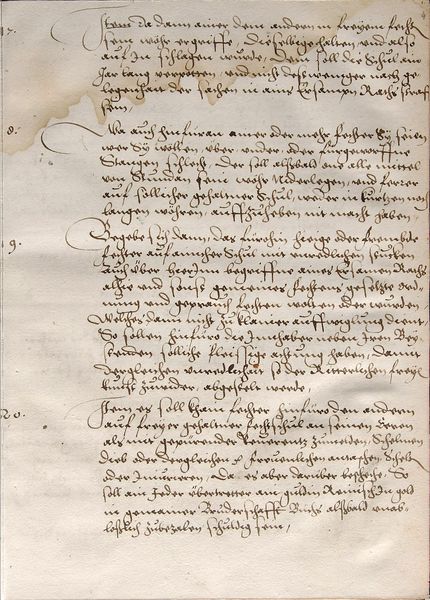 7.
Item da dann ainer dem andern in freyem fechten
sein wöhr ergriffe, die selbig halten und also
auf In schlagen wurde, dem soll die Schul ain
Jar lang verpotten, und nicht desto weniger nach ge-
legenhait der sachen in ains Ersamen Raths straff
sein,
8.
Wa auch hinfüran ainer oder mehr fechter Sy seien
wer Sy wöllen, über under, oder fürgeworffne
Stangen schlech, der soll alßbald one alle mittel
von Stundan sein wöhr Niderlegen, und ferrer
auf söllicher gehaltner Schul, weder in kurtzen noch
langen wöhren, auffzüheben nit macht haben,
9.
Begebe sich dann, das fürohin hiesige oder frembde
fechter auf ainicher Schul mit unredlichen stucken
auch über herInn begriffne aines Ersamen Raths
alhie und sonst gemaines fechtens gesetzte ord-
nung und geprauch fechten wolten oder wurden
welches dann nicht zu klainer auffwiglung dient
So sollen hinfüro die Inhaber neben Iren Bey-
stenden söllche fleissige achtung haben, damit
dergleichen unredlichait so der Ritterlichen frey
kunst zuwider, abgestelt werde,
10.
Item es soll kham fechter hinfüro den andern
auf freyer gehaltner fechtschul an seinen Eeren
als mit gepürender Reverentz zumelden, Schelmen
dieb oder dergleichen frevenlichen antasten, Schelten
oder Iniurieren, Da es aber darüber beschehe, So
soll ain Jeder übertretter ain guldin Reinisch In gold
in gemainer Bruderschafft Buchs alßbald unab-
leßlich zubezalen schuldig sein,